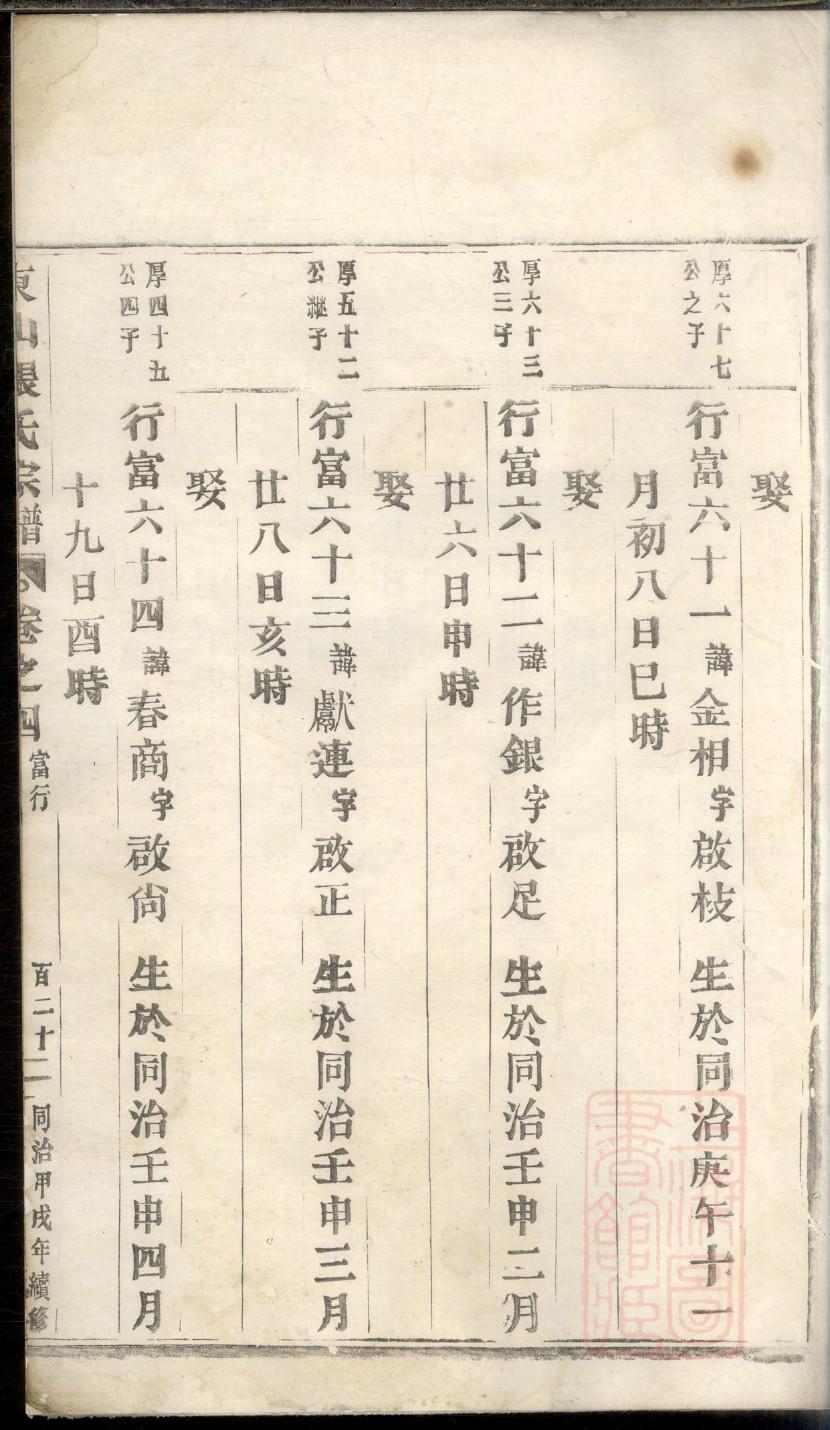 娶
厚六十七
公之子
行富六十一諱金相字啟枝 生於同治庚午十一
月初八日巳時
娶
厚六十三
公三子
行富六十二諱作銀字啟足 生於同治壬申二月
廿六日申時
娶
厚五十二
公繼子
行富六十三諱獻連字啟正 生於同治壬申三月
廿八日亥時
娶
厚四十五
公四子
行富六十四諱春商字啟尙 生於同治壬申四月
十九日酉時
東山張氏宗譜 卷之四 富行 百二十二 同治甲戌年續修